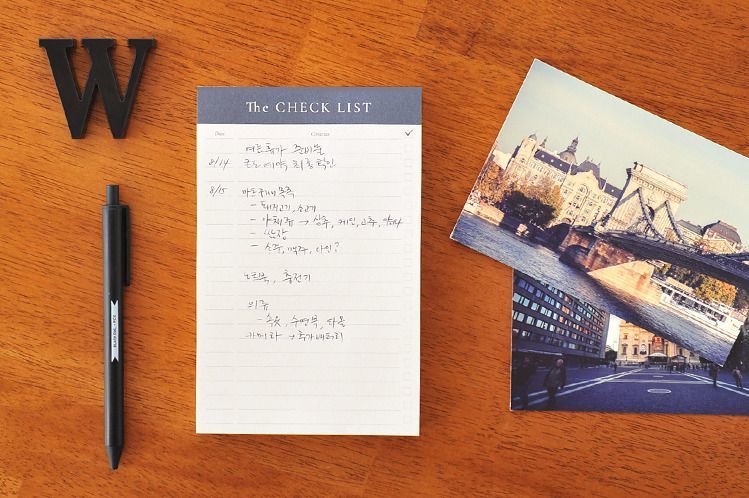 W
The CHECK LIST
Date Contents ✓
여름휴가 준비물
8/14 콘도예약 최종확인
8/15 마트구매 목록
- 돼지고기, 소고기
- 야채류 → 상추, 깻잎, 고추,
- 쌈장
- 소주, 맥주, 와인?
노트북, 충전기
의류
- 속옷, 수면복, 타올
카메라 → 추가배터리